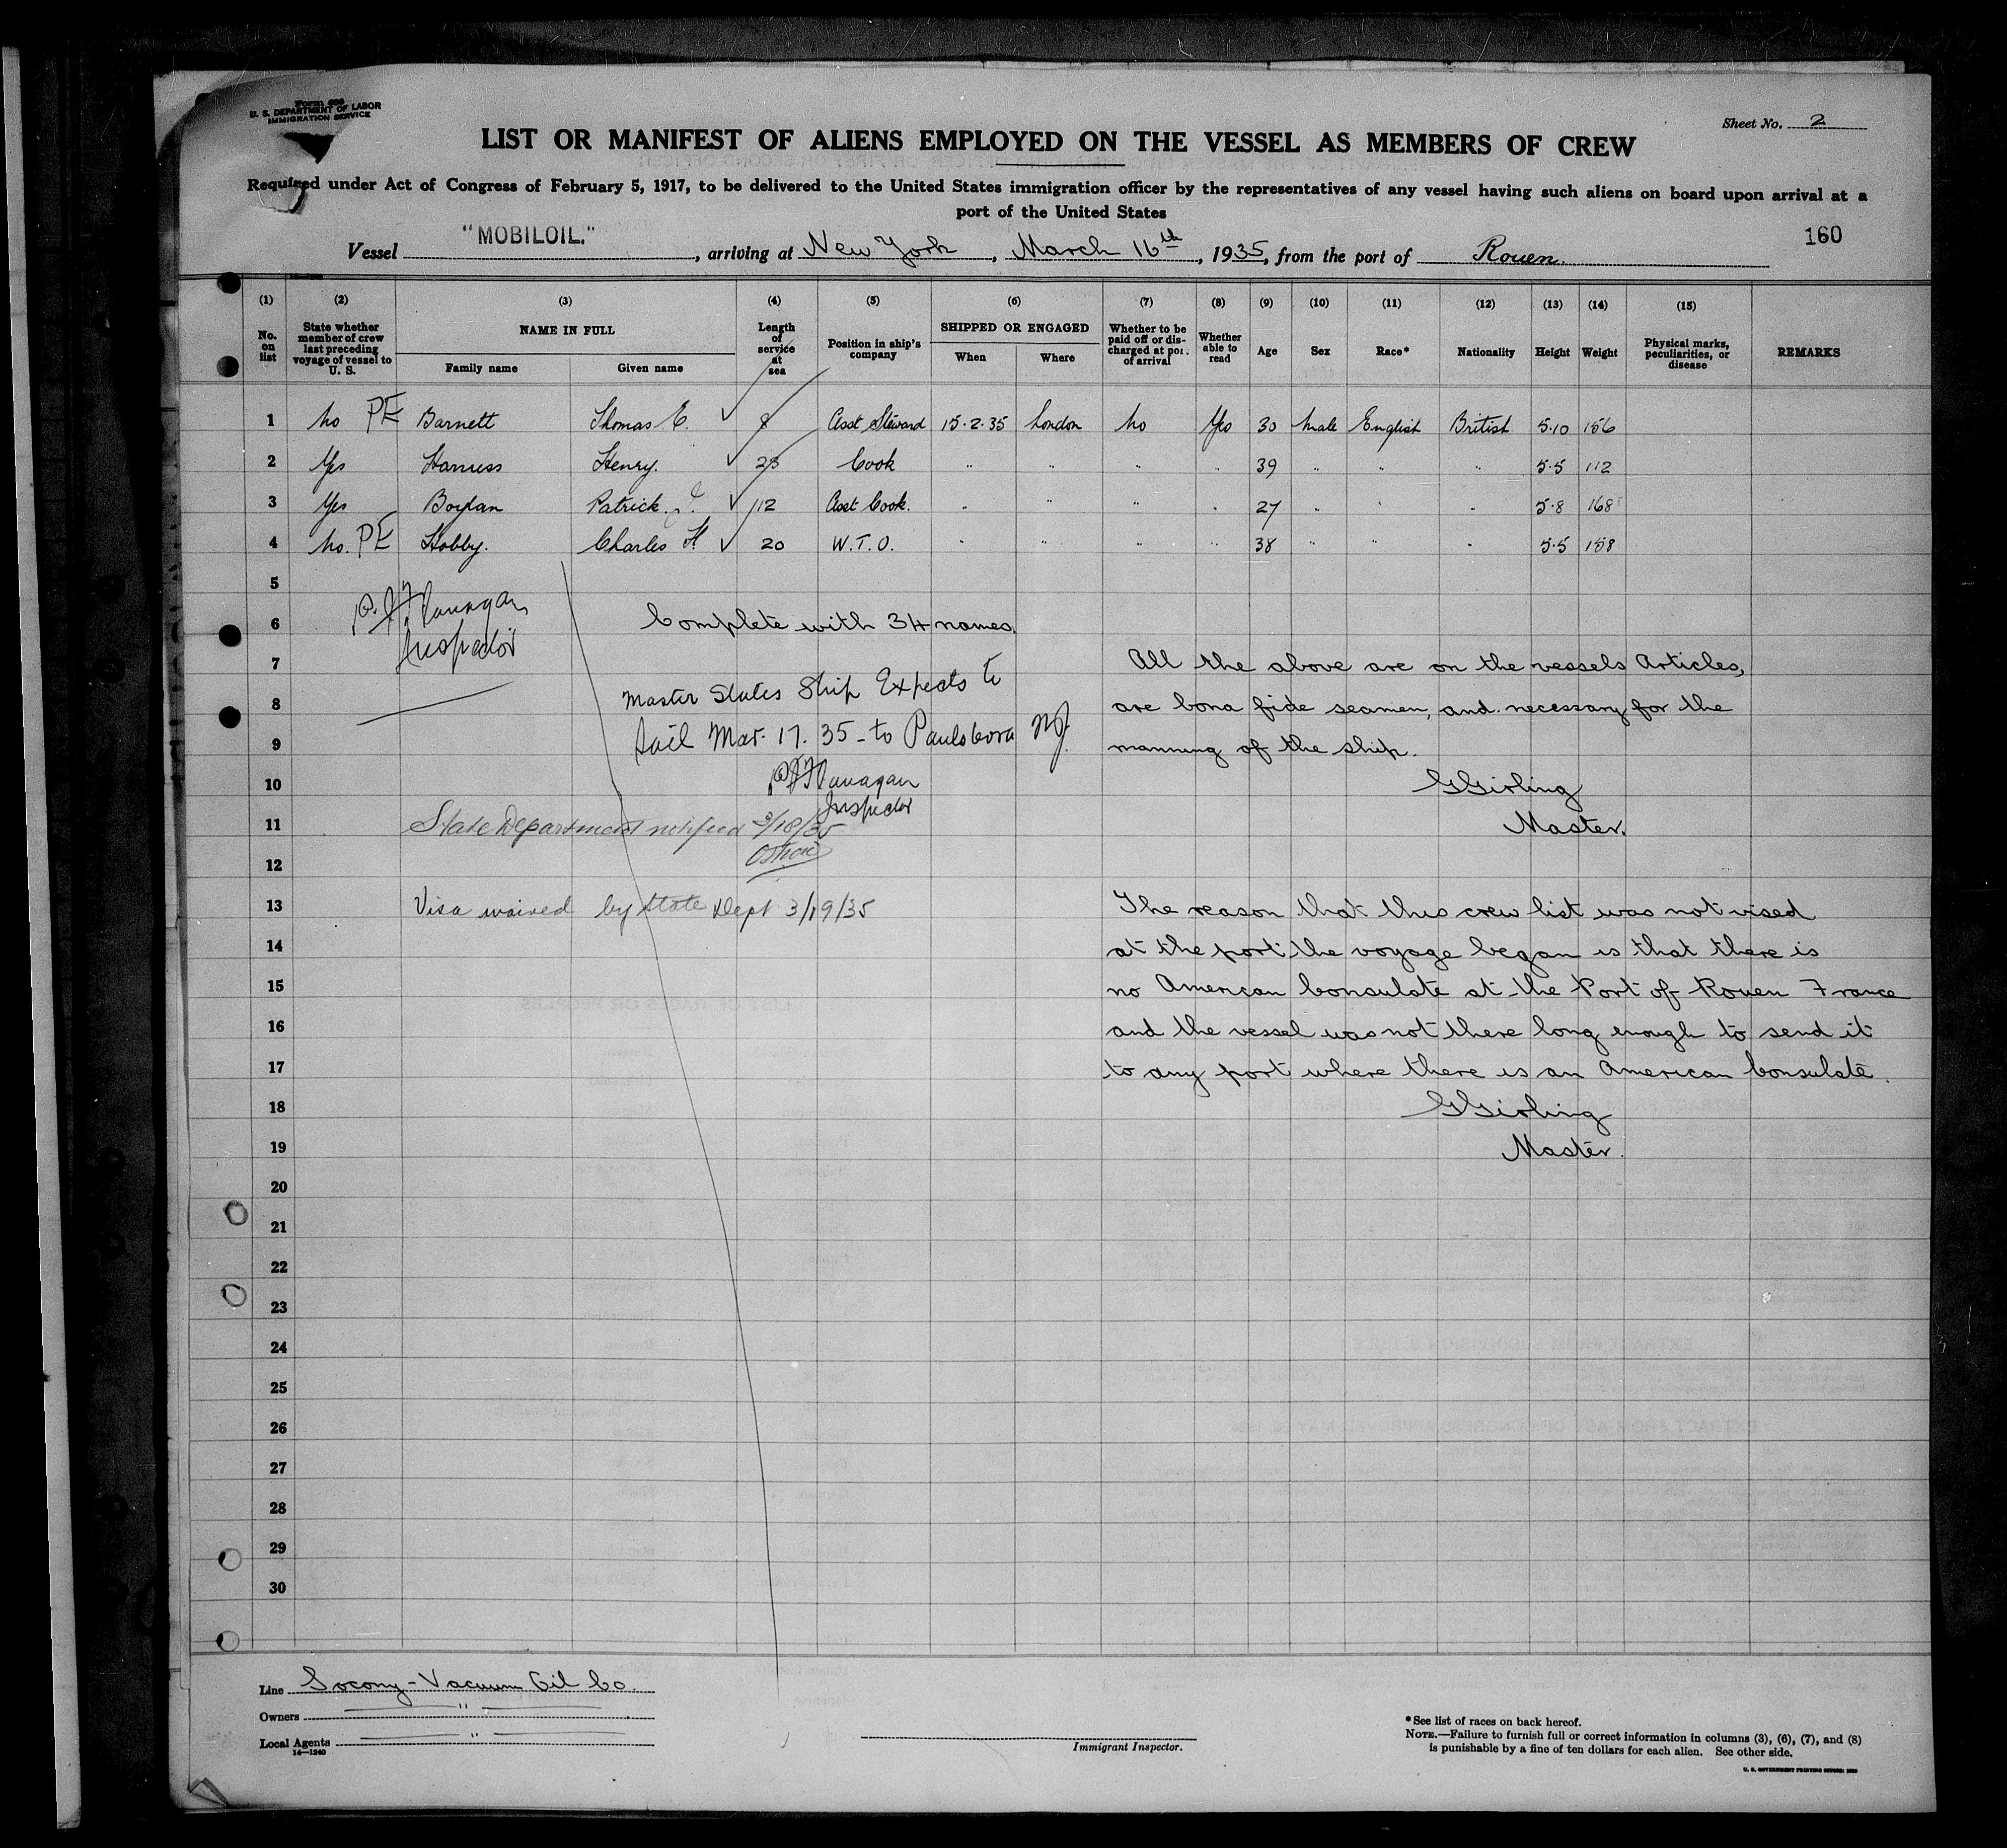 Form 689
U. S. DEPARTMENT OF LABOR
IMMIGRATION SERVICE
Sheet No. 2
LIST OR MANIFEST OF ALIENS EMPLOYED ON THE VESSEL AS MEMBERS OF CREW
Required under Act of Congress of February 5, 1917, to be delivered to the United States immigration officer by the representatives of any vessel having such aliens on board upon arrival at a
port of the United States
160
Vessel "MOBILOIL.", arriving at New York, March 16th, 1935, from the port of Rouen.
(1) (2) (3) (4) (5) (6) (7) (8) (9) (10) (11) (12) (13) (14) (15)
No. on list
State whether member of crew last preceding voyage of vessel to U. S.
NAME IN FULL
Family name Given name
Length of service at sea
Position in ship's company
SHIPPED OR ENGAGED
When Where
Whether to be paid off or discharged at port of arrival
Whether able to read
Age Sex Race* Nationality Height Weight
Physical marks, peculiarities, or disease
REMARKS
1 No PE Barnett Thomas C. ✓ 8 Asst Steward 15.2.35 London No Yes 30 Male English British 5.10 156
2 Yes Henry. ✓ 23 Cook " " " " 39 " " " 5.5 112
3 Yes Boylan Patrick ✓ 12 Asst Cook. " " " " 27 " " " 5.8 168
4 No. PE Hobby. Charles H ✓ 20 W.T.O. " " " " 38 " " " 5.5 158
5
6 Complete with 34 names.
P. J. Flanagan
Inspector
7 All the above are on the vessels Articles,
8 Master States Ship Expects to
are bona fide seamen, and necessary for the
9 Sail Mar. 17. 35 - to Paulsboro NJ.
manning of the ship.
10 P J Flanagan
Inspector
GGirling
11 State Department notified 3/18/35
Master.
12
13 Visa waived by State Dept 3/19/35
The reason that this crew list was not vised
14 at the port the voyage began is that there is
15 no American Consulate at the Port of Rouen France
16 and the vessel was not there long enough to send it
17 to any port where there is an American Consulate.
18 GGirling
19 Master.
20
21
22
23
24
25
26
27
28
29
30
Line Socony-Vacuum Oil Co.
Owners "
Local Agents "
14—1240
Immigrant Inspector.
*See list of races on back hereof.
NOTE.—Failure to furnish full or correct information in columns (3), (6), (7), and (8)
is punishable by a fine of ten dollars for each alien. See other side.